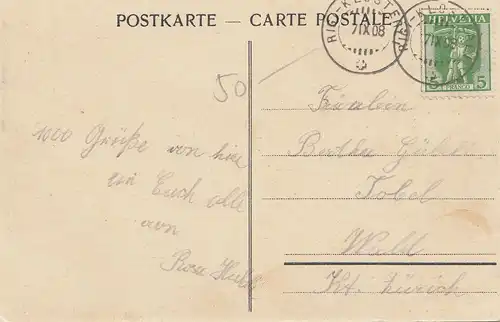 POSTKARTE - CARTE POSTALE
RIGI-KLÖSTERLI
7.IX.08
HELVETIA
FRANCO 5
50
Fräulein
1000 Grüße von hier
Bertha
an Euch alle
Tobel
von
Wald
Rosa
Kt. Zürich